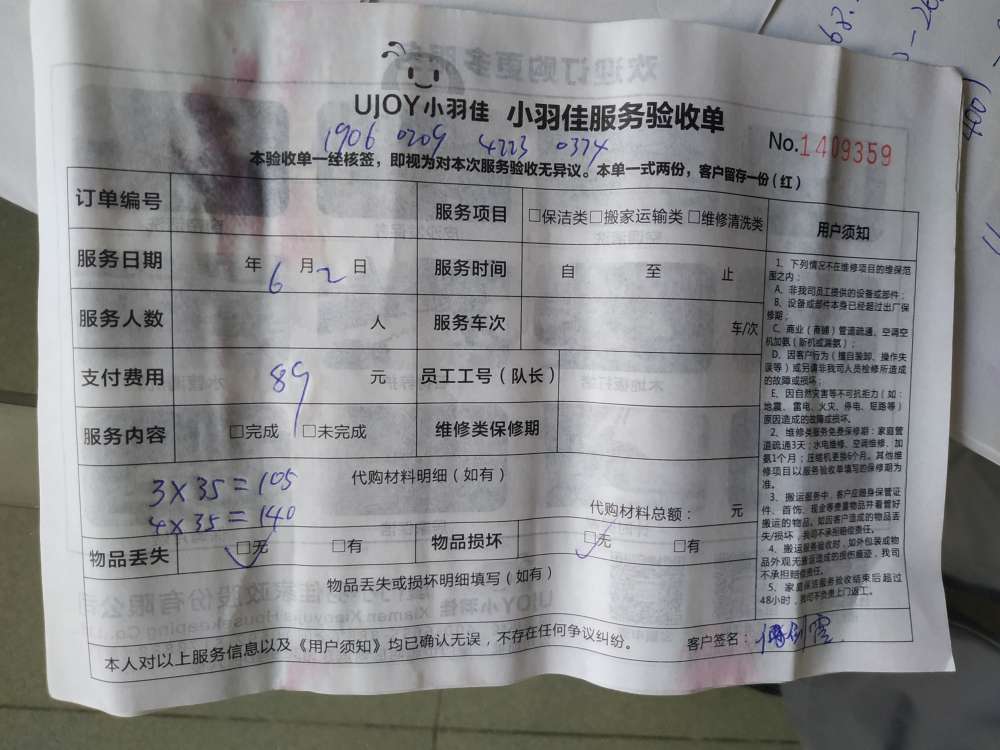 UJOY小羽佳 小羽佳服务验收单
1906 0209 4223 0374
No.1409359
本验收单一经核签，即视为对本次服务验收无异议。本单一式两份，客户留存一份(红)
订单编号 服务项目 □保洁类□搬家运输类□维修清洗类
服务日期 年6月2日 服务时间 自 至 止
服务人数 人 服务车次 车/次
支付费用 89 元 员工工号(队长)
服务内容 □完成 □未完成 维修类保修期
代购材料明细(如有)
3×35=105
4×35=140
代购材料总额： 元
物品丢失 □无 □有 物品损坏 □无 □有
物品丢失或损坏明细填写(如有)
本人对以上服务信息以及《用户须知》均已确认无误，不存在任何争议纠纷。
客户签名：
用户须知
1、下列情况不在维修项目的维保范
围之内：
A、非我司员工提供的设备或部件；
B、设备或部件本身已经超过出厂保
修期；
C、商业(商铺)管道疏通、空调空
机加氨(新机或漏氨)；
D、因客户行为(擅自装卸、操作失
误等)或另请非我司人员检修所造成
的故障或损坏；
E、因自然灾害等不可抗拒力(如：
地震、雷电、火灾、停电、短路等)
原因造成的故障或损坏。
2、维修类服务免费保修期：家庭管
道疏通3天；水电维修、空调维修、加
氨1个月；压缩机更换6个月。其他维
修项目以服务验收单填写的保修期为
准。
3、搬运服务中，客户应随身保管证
件、首饰、现金等贵重物品并看管好
搬运的物品。如因客户造成的物品丢
失/损坏，我司不承担赔偿责任。
4、搬运服务验收时，如外包装或物
品外观无搬运造成的损伤痕迹，我司
不承担赔偿责任。
5、家庭保洁服务验收结束后超过
48小时，我司不负责上门返工。
欢迎订购更多服务
4001